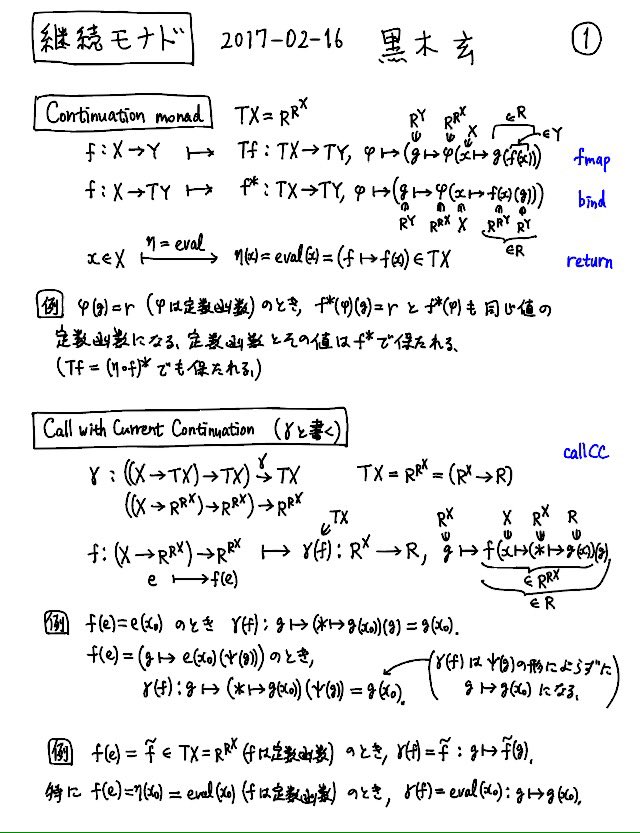 継続モナド 2017-02-16 黒木玄 ①
Continuation monad TX = R^{R^X}
R^Y R^{R^X} X ∈R ∈Y
f : X → Y ↦ Tf : TX → TY, φ ↦ (g ↦ φ(x ↦ g(f(x)))) fmap
f : X → TY ↦ f* : TX → TY, φ ↦ (g ↦ φ(x ↦ f(x)(g))) bind
R^Y R^{R^X} X R^{R^Y} R^Y
∈R
x ∈ X ↦ η = eval η(x) = eval(x) = (f ↦ f(x)) ∈ TX return
例 φ(g) = r (φは定数函数) のとき, f*(φ)(g) = r と f*(φ) も同じ値の
定数函数になる. 定数函数とその値は f* で保たれる.
(Tf = (η∘f)* でも保たれる.)
Call with Current Continuation (γと書く)
callCC
γ : ((X → TX) → TX) →γ TX TX = R^{R^X} = (R^X → R)
((X → R^{R^X}) → R^{R^X}) → R^{R^X}
TX R^X X R^X R
f : (X → R^{R^X}) → R^{R^X} ↦ γ(f) : R^X → R, g ↦ f(x ↦ (* ↦ g(x)))(g)
e ↦ f(e) ∈ R^{R^X}
∈ R
例 f(e) = e(x₀) のとき γ(f) : g ↦ (* ↦ g(x₀))(g) = g(x₀).
f(e) = (g ↦ e(x₀)(ψ(g))) のとき,
γ(f) : g ↦ (* ↦ g(x₀))(ψ(g)) = g(x₀).
(γ(f) は ψ(g) の形によらずに
g ↦ g(x₀) になる.)
例 f(e) = f̃ ∈ TX = R^{R^X} (fは定数函数) のとき, γ(f) = f̃ : g ↦ f̃(g).
特に f(e) = η(x₀) = eval(x₀) (fは定数函数) のとき, γ(f) = eval(x₀) : g ↦ g(x₀).